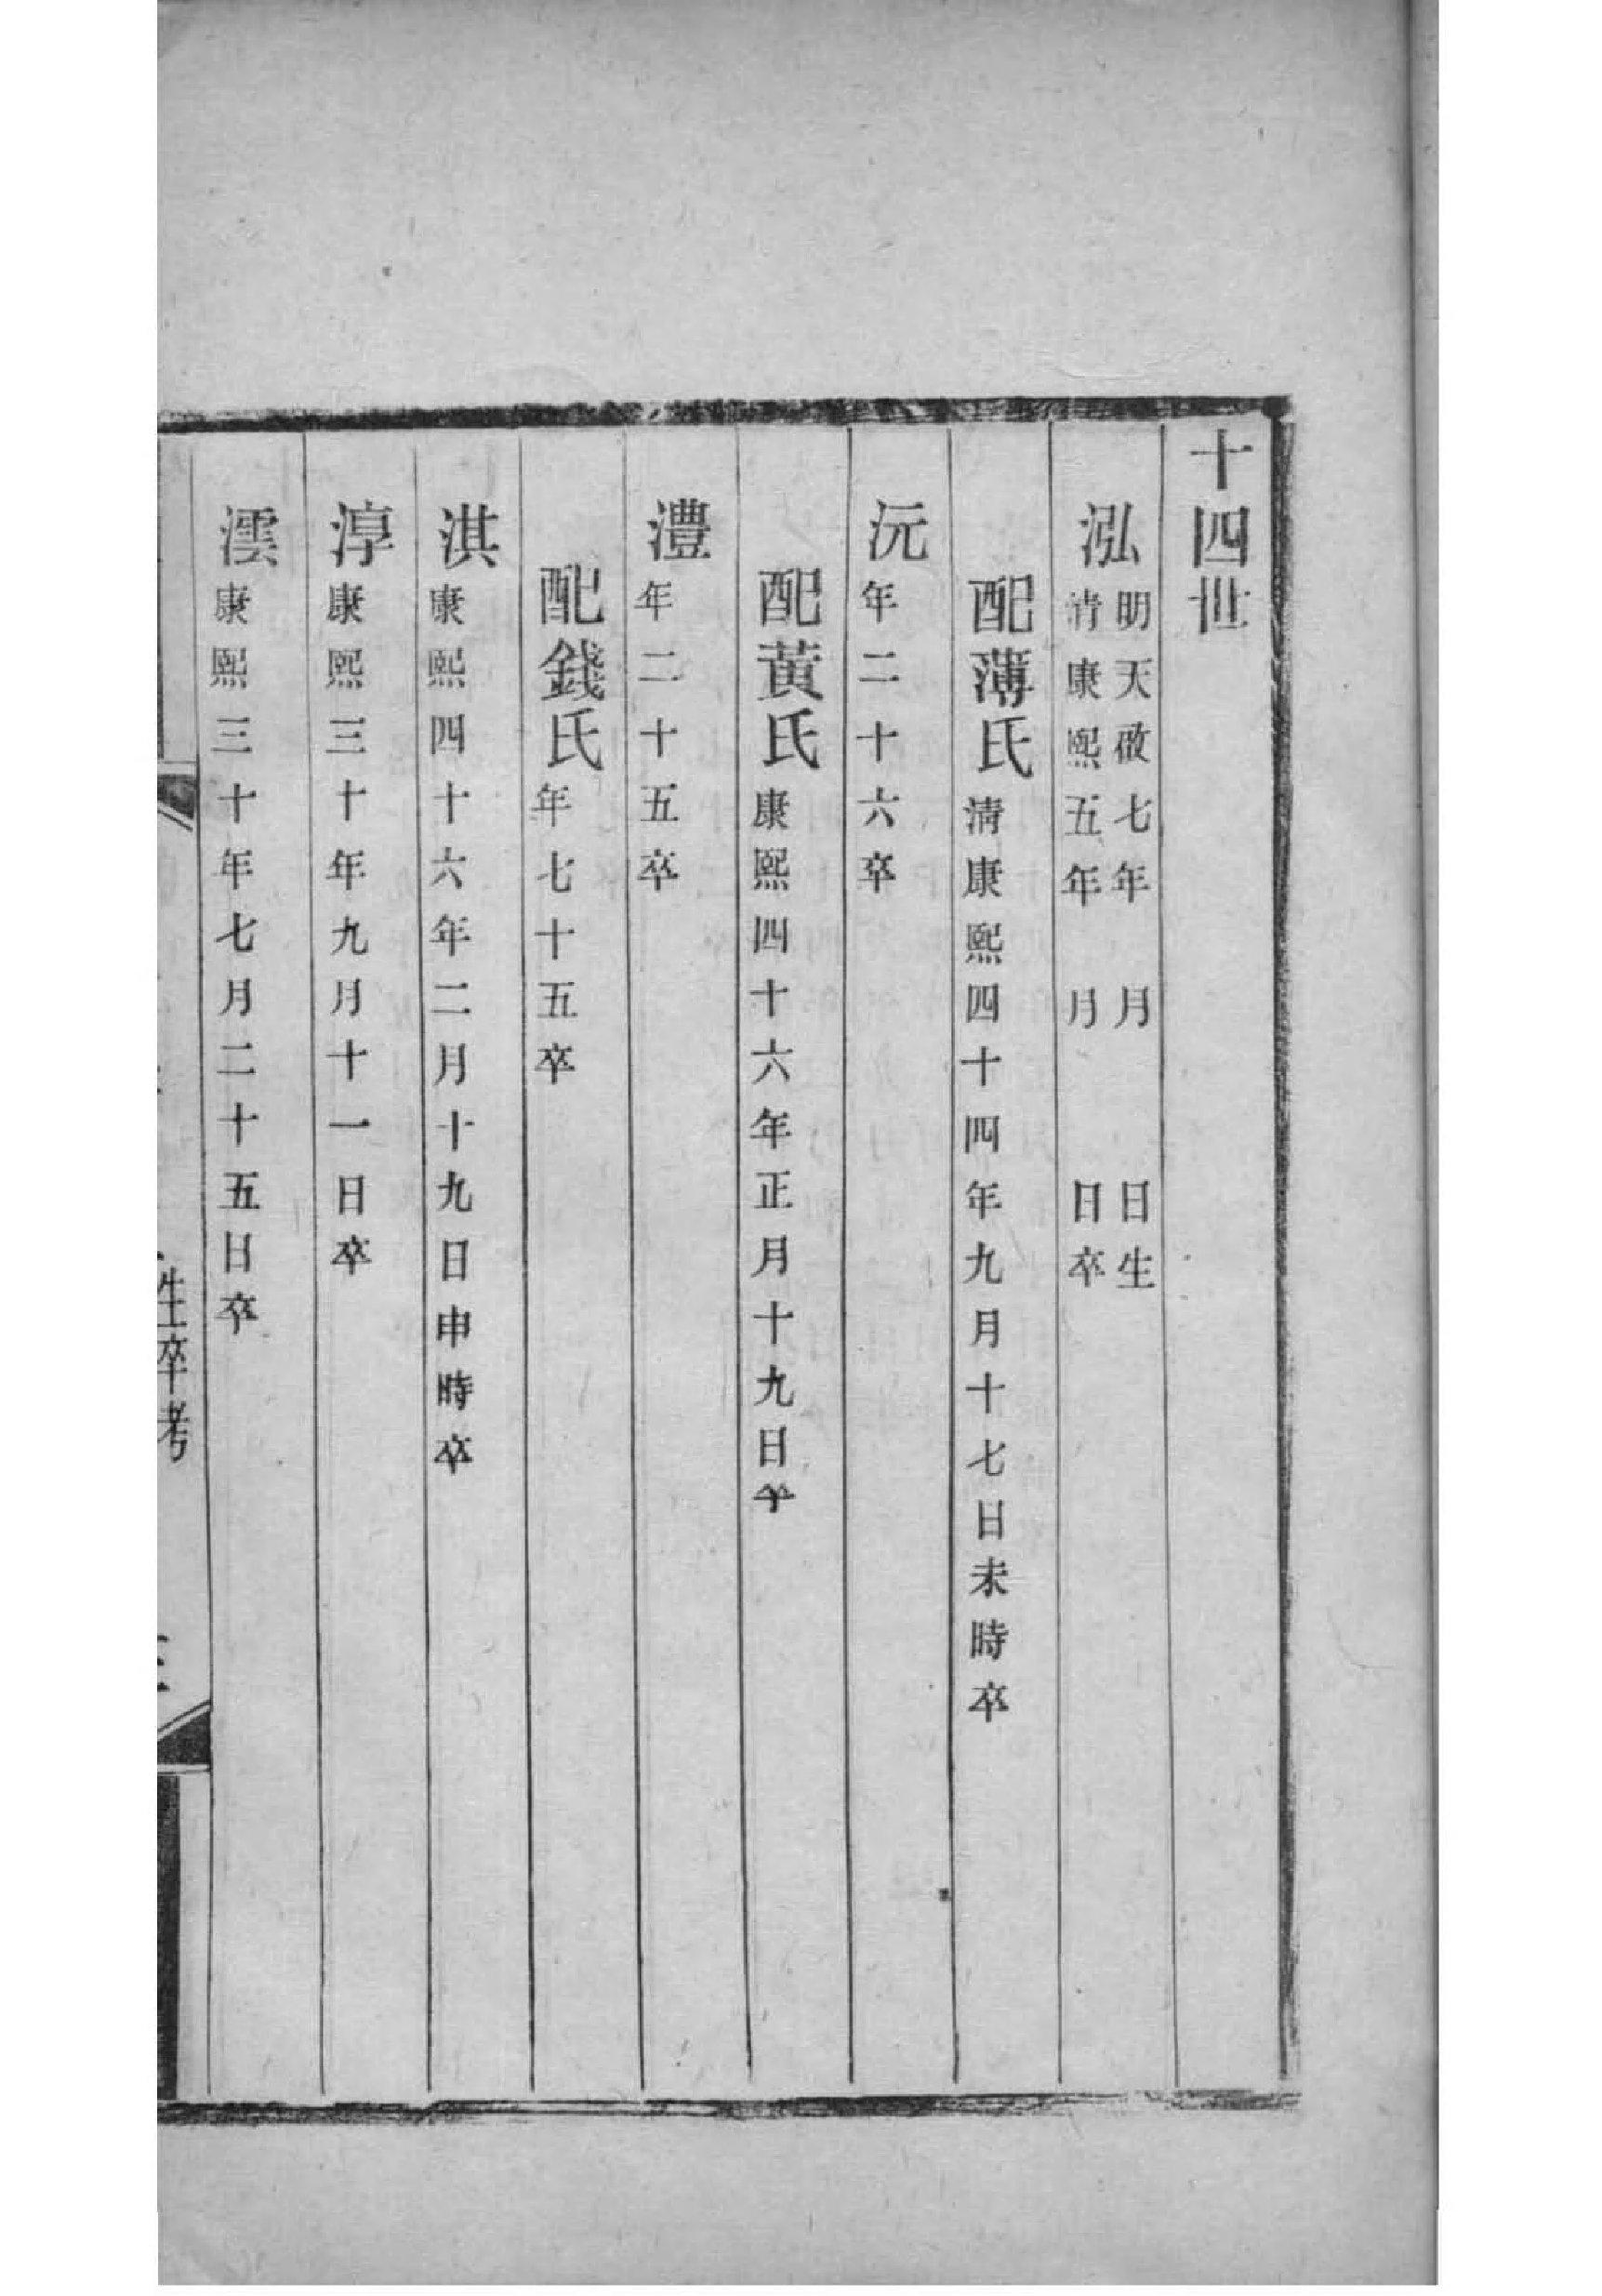 十四世
泓 明天啟七年 月 日生
清康熙五年 月 日卒
配薄氏 清康熙四十四年九月十七日未時卒
沅 年二十六卒
配黃氏 康熙四十六年正月十九日卒
澧 年二十五卒
配錢氏 年七十五卒
淇 康熙四十六年二月十九日申時卒
淳 康熙三十年九月十一日卒
澐 康熙三十年七月二十五日卒
生卒考